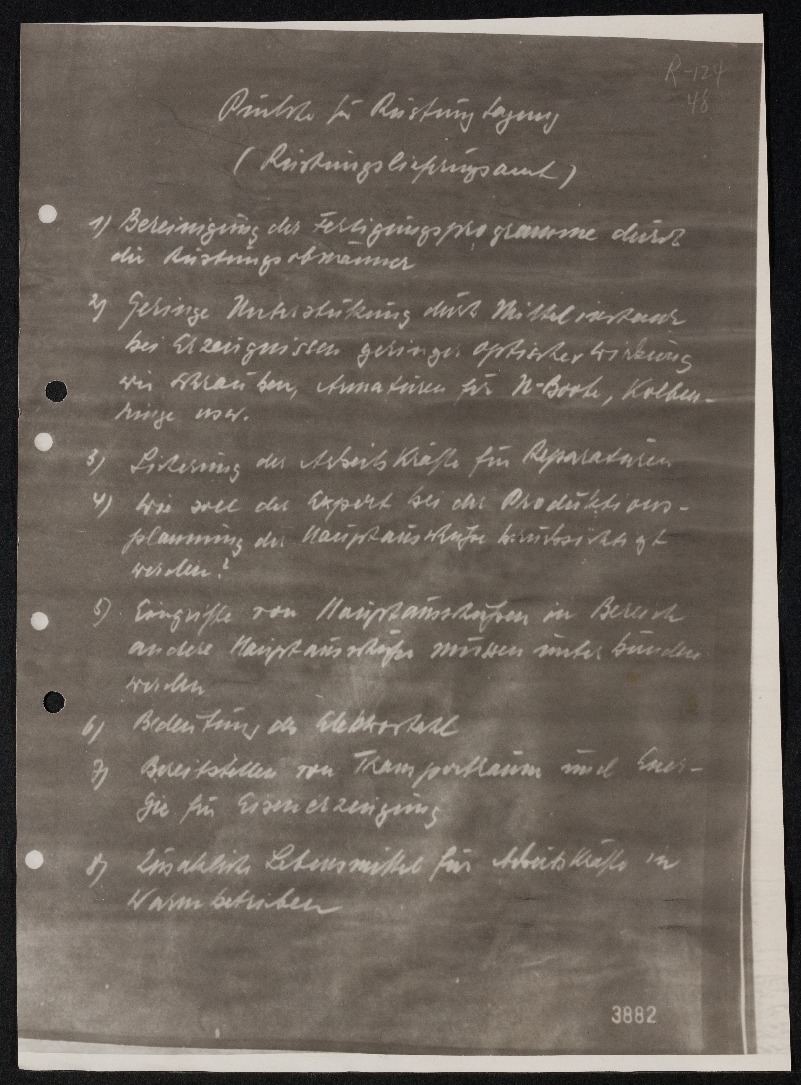 R-124
48
Punkte für Rüstungstagung
(Rüstungslieferungsamt)
1) Bereinigung der Fertigungsprogramme durch
die Rüstungsobmänner
2) Geringe Unterstützung durch Mittelinstanz
bei Erzeugnissen geringer optischer Wirkung
wie Schrauben, Armaturen für U-Boote, Kolben-
ringe usw.
3) Sicherung der Arbeitskräfte für Reparaturen
4) Wie soll der Export bei der Produktions-
planung der Hauptausschüsse berücksichtigt
werden?
5) Eingriffe von Hauptausschüssen in Bereich
andere Hauptausschüsse müssen unterbunden
werden
6) Bedeutung des Elektrostahl
7) Bereitstellen von Transportraum und Ener-
gie für Eisenerzeugung
8) Zusätzliche Lebensmittel für Arbeitskräfte in
Warmbetrieben
3882